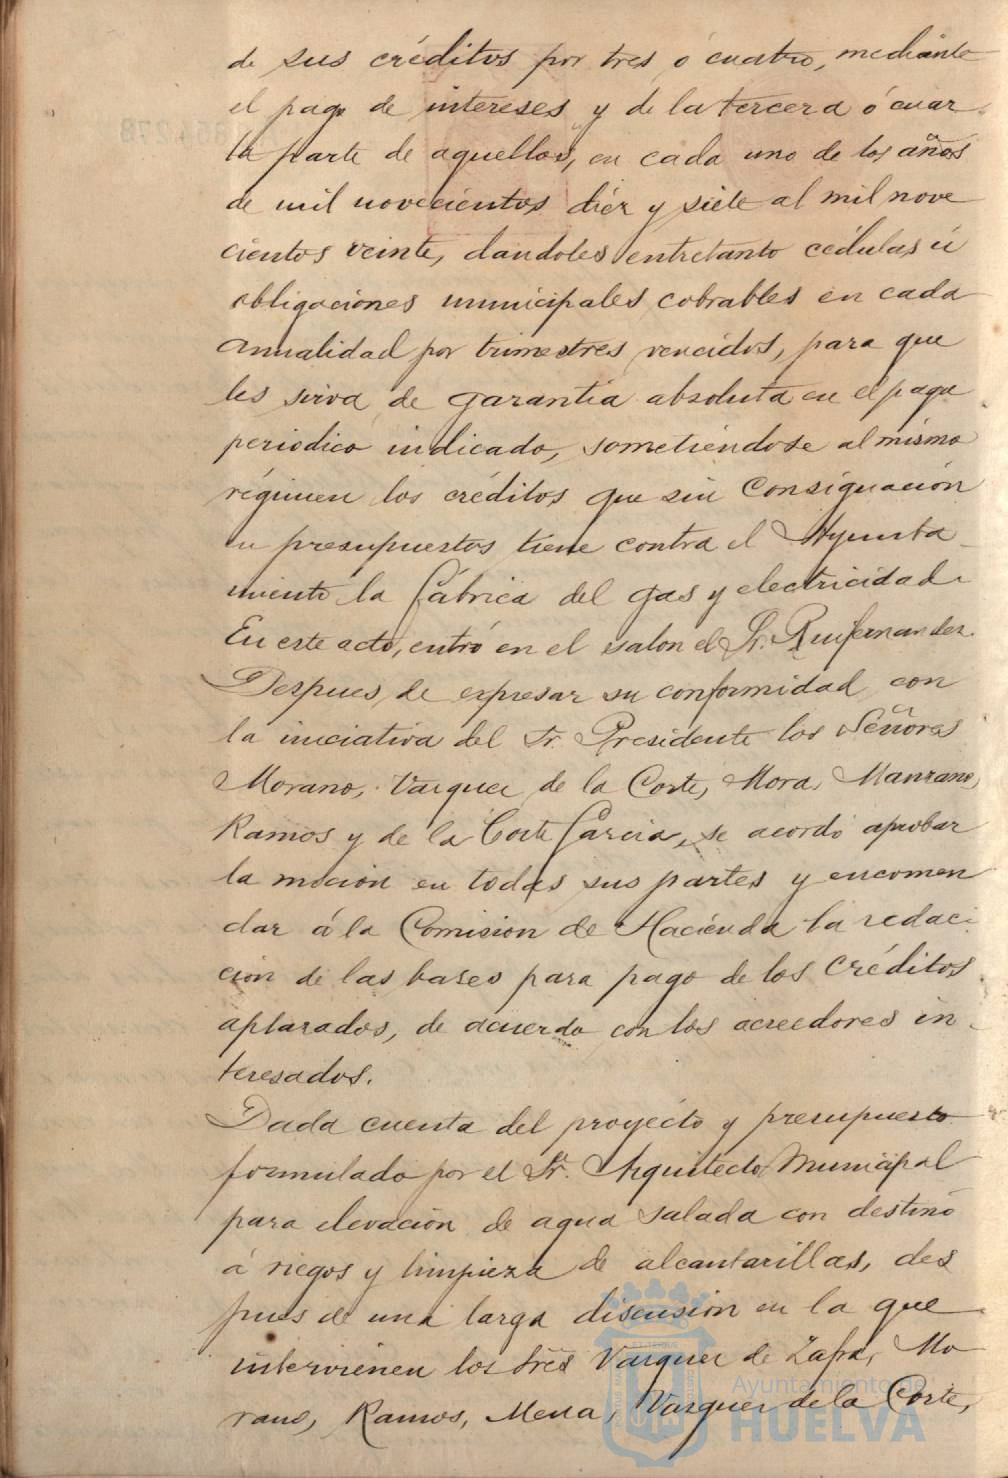 de sus créditos por tres ó cuatro, mediante
el pago de intereses y de la tercera ó cuar
ta parte de aquellos, en cada uno de los años
de mil novecientos diez y siete al mil nove
cientos veinte, dandoles entretanto cédulas ú
obligaciones municipales cobrables en cada
anualidad por trimestres vencidos, para que
les sirva de garantia absoluta en el pago
periodico indicado, sometiéndose al mismo
régimen los créditos que sin consignación
en presupuestos tiene contra el Ayunta
miento la fábrica del gas y electricidad.
En este acto, entró en el salon el Sr. Ruifernandez.
Despues de expresar su conformidad con
la iniciativa del Sr. Presidente los Señores
Morano, Vazquez de la Corte, Mora, Manzano,
Ramos y de la Corte Garcia, se acordó aprobar
la moción en todas sus partes y encomen
dar á la Comision de Hacienda la redac-
ción de las bases para pago de los créditos
aplazados, de acuerdo con los acreedores in-
teresados.
Dada cuenta del proyecto y presupuesto
formulado por el Sr. Arquitecto Municipal
para elevación de agua salada con destino
á riegos y limpieza de alcantarillas, des
pues de una larga discusión en la que
intervienen los Srēs Vazquez de Zafra, Mo
rano, Ramos, Mena, Vazquez de la Corte,
Ayuntamiento de
HUELVA